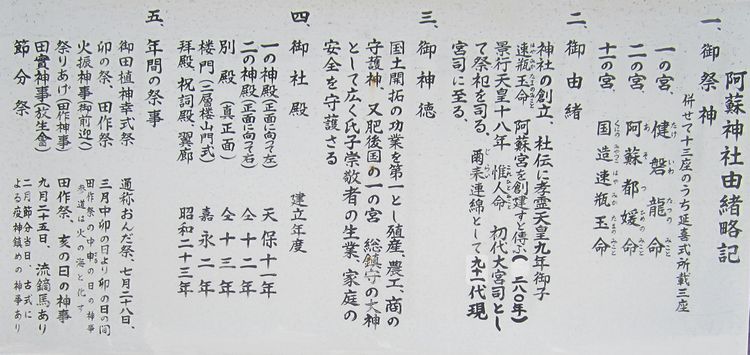 阿蘇神社由緒略記
一、御祭神
併せて十三座のうち延喜式所載三座
一の宮、健磐龍命
たけいわたつのみこと
二の宮 阿蘇都媛命
あそつひめのみこと
十一の宮 国造速瓶玉命
くにのみやつこはやみかたまのみこと
二、御由緒
神社の創立、社伝に孝霊天皇九年御子
速瓶玉命 阿蘇宮を創建すと傳ふ(二八〇年)
景行天皇十八年 惟人命 初代大宮司とし
て祭祀を司る。爾来連綿として九十一代現
宮司に至る、
三、御神徳
国土開拓の功業を第一とし殖産、農工、商の
守護神、又肥後国の一の宮 総鎮守の大神
として広く氏子崇敬者の生業、家庭の
安全を守護さる
四、御社殿 建立年度
一の神殿(正面に向て左) 天保十一年
二の神殿(正面に向て右) 仝十二年
別殿(真正面) 仝十三年
楼門(二層楼山門式) 嘉永二年
拝殿 祝詞殿 翼廊 昭和二十三年
五、年間の祭事
御田植神幸式祭 通称おんだ祭、七月二十八日、
卯の祭、田作祭 三月中卯の日より卯の日の間
火振神事(御前迎へ) 田作祭の中申の日の神事
参道は火の海と化す
祭りあげ(田作神事) 田作祭、亥の日の神事
田實神事(放生會) 九月二十五日、流鏑馬あり
節分祭 二月節分当日、古式に
よる疫神鎮めの神事あり